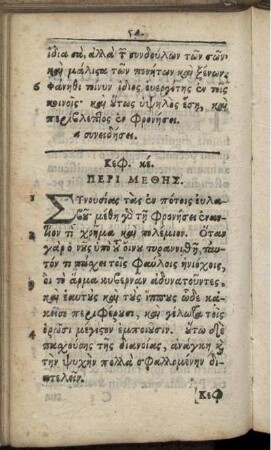 54
ἴδια σὰ, ἀλλὰ τ͂ συνδούλων τῶν σῶν·
καὶ μάλιςα τῶν πενήτων καὶ ξένων.
6 Φάνηθι τοίνυν ἴδιος ἐυεργέτης ἐν τοῖς
κοινοῖς· καὶ ὕτως ὑψηλὸς ἔσῃ, καὶ
περίβλεπτος ἐν Φρονήσει.
συνειδήσει.
Κεφ. κέ.
ΠΕΡΙ ΜΕΘΗΣ.
1 ΣΥνουσίας τὰς ἐν πότοις ἐυλα-
βοῦ· μέθη γὸ τῇ Φρονήσει ἐναν-
2 τίον τὶ χρῆμα καὶ πολέμιον. ὅταν
γὰρ ὁ νῦς ὑπὸ οἴνυ τυραννηθῇ, ταυ-
3 τόν τι πάχει τοῖς Φαύλοις ἡνιόχοις,
οἳ τὸ ἅρμα κυβερνᾶν ἀδυνατοῦντες,
καὶ ἑαυτὺς καὶ τὺς ἵππυς ὧδε
κακεῖσε περιφέρυσι, καὶ γέλωτα τοῖς
4 ὁρῶσι μέγιςον ἐμποιοῦσιν. ὕτω
παχούσης τῆς διανοίας, ἀνάγκη κ
τὴν ψυχὴν πολλὰ σφαλλομένην δι-
ατελεῖν.
Κεφ